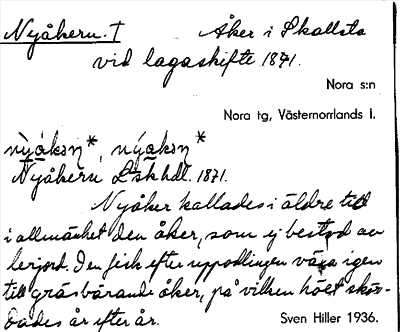 Nyåkern. † Åker i Skallsta
vid lagaskifte 1871.
Nora s:n
Nora tg, Västernorrlands l.
nỳákən*, nýakən*
Nyåkern L-sk hdl. 1871.
Nyåker kallades i äldre tid
i allmänhet den åker, som ej bestod av
lerjord. Den fick efter uppodlingen växa igen
till gräsbärande åker, på vilken höet skör-
dades år efter år.
Sven Hiller 1936.